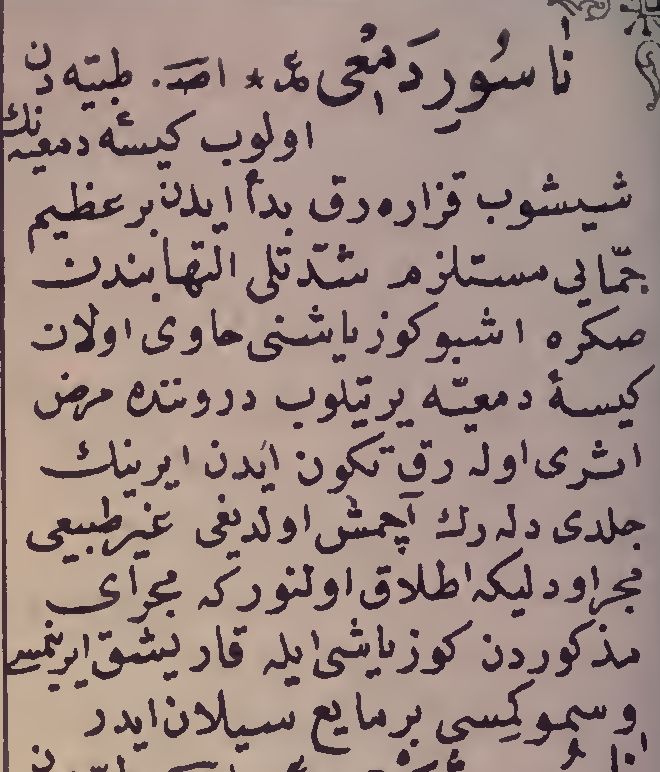 ناسُورِ دَمْعِى عڡ * اصـ . طبیّه دن
اولوب كیسهٔ دمعیه نك
شیشوب قزاره رق بدأ ایدن بر عظیم
حمّایی مستلزم شدّتلی التهابندن
صكره اشبو كوزیاشنی حاوی اولان
كیسهٔ دمعیّه یرتیلوب دروننده مرض
اثری اوله رق تكون ایدن ایرینك
جلدی دله رك آچمش اولدیغی غیر طبیعی
مجرا و دلیكه اطلاق اولنور كه مجرای
مذكوردن كوزیاشی ایله قاریشق ایرینمسی
و سموكمسی بر مایع سیلان ایدر